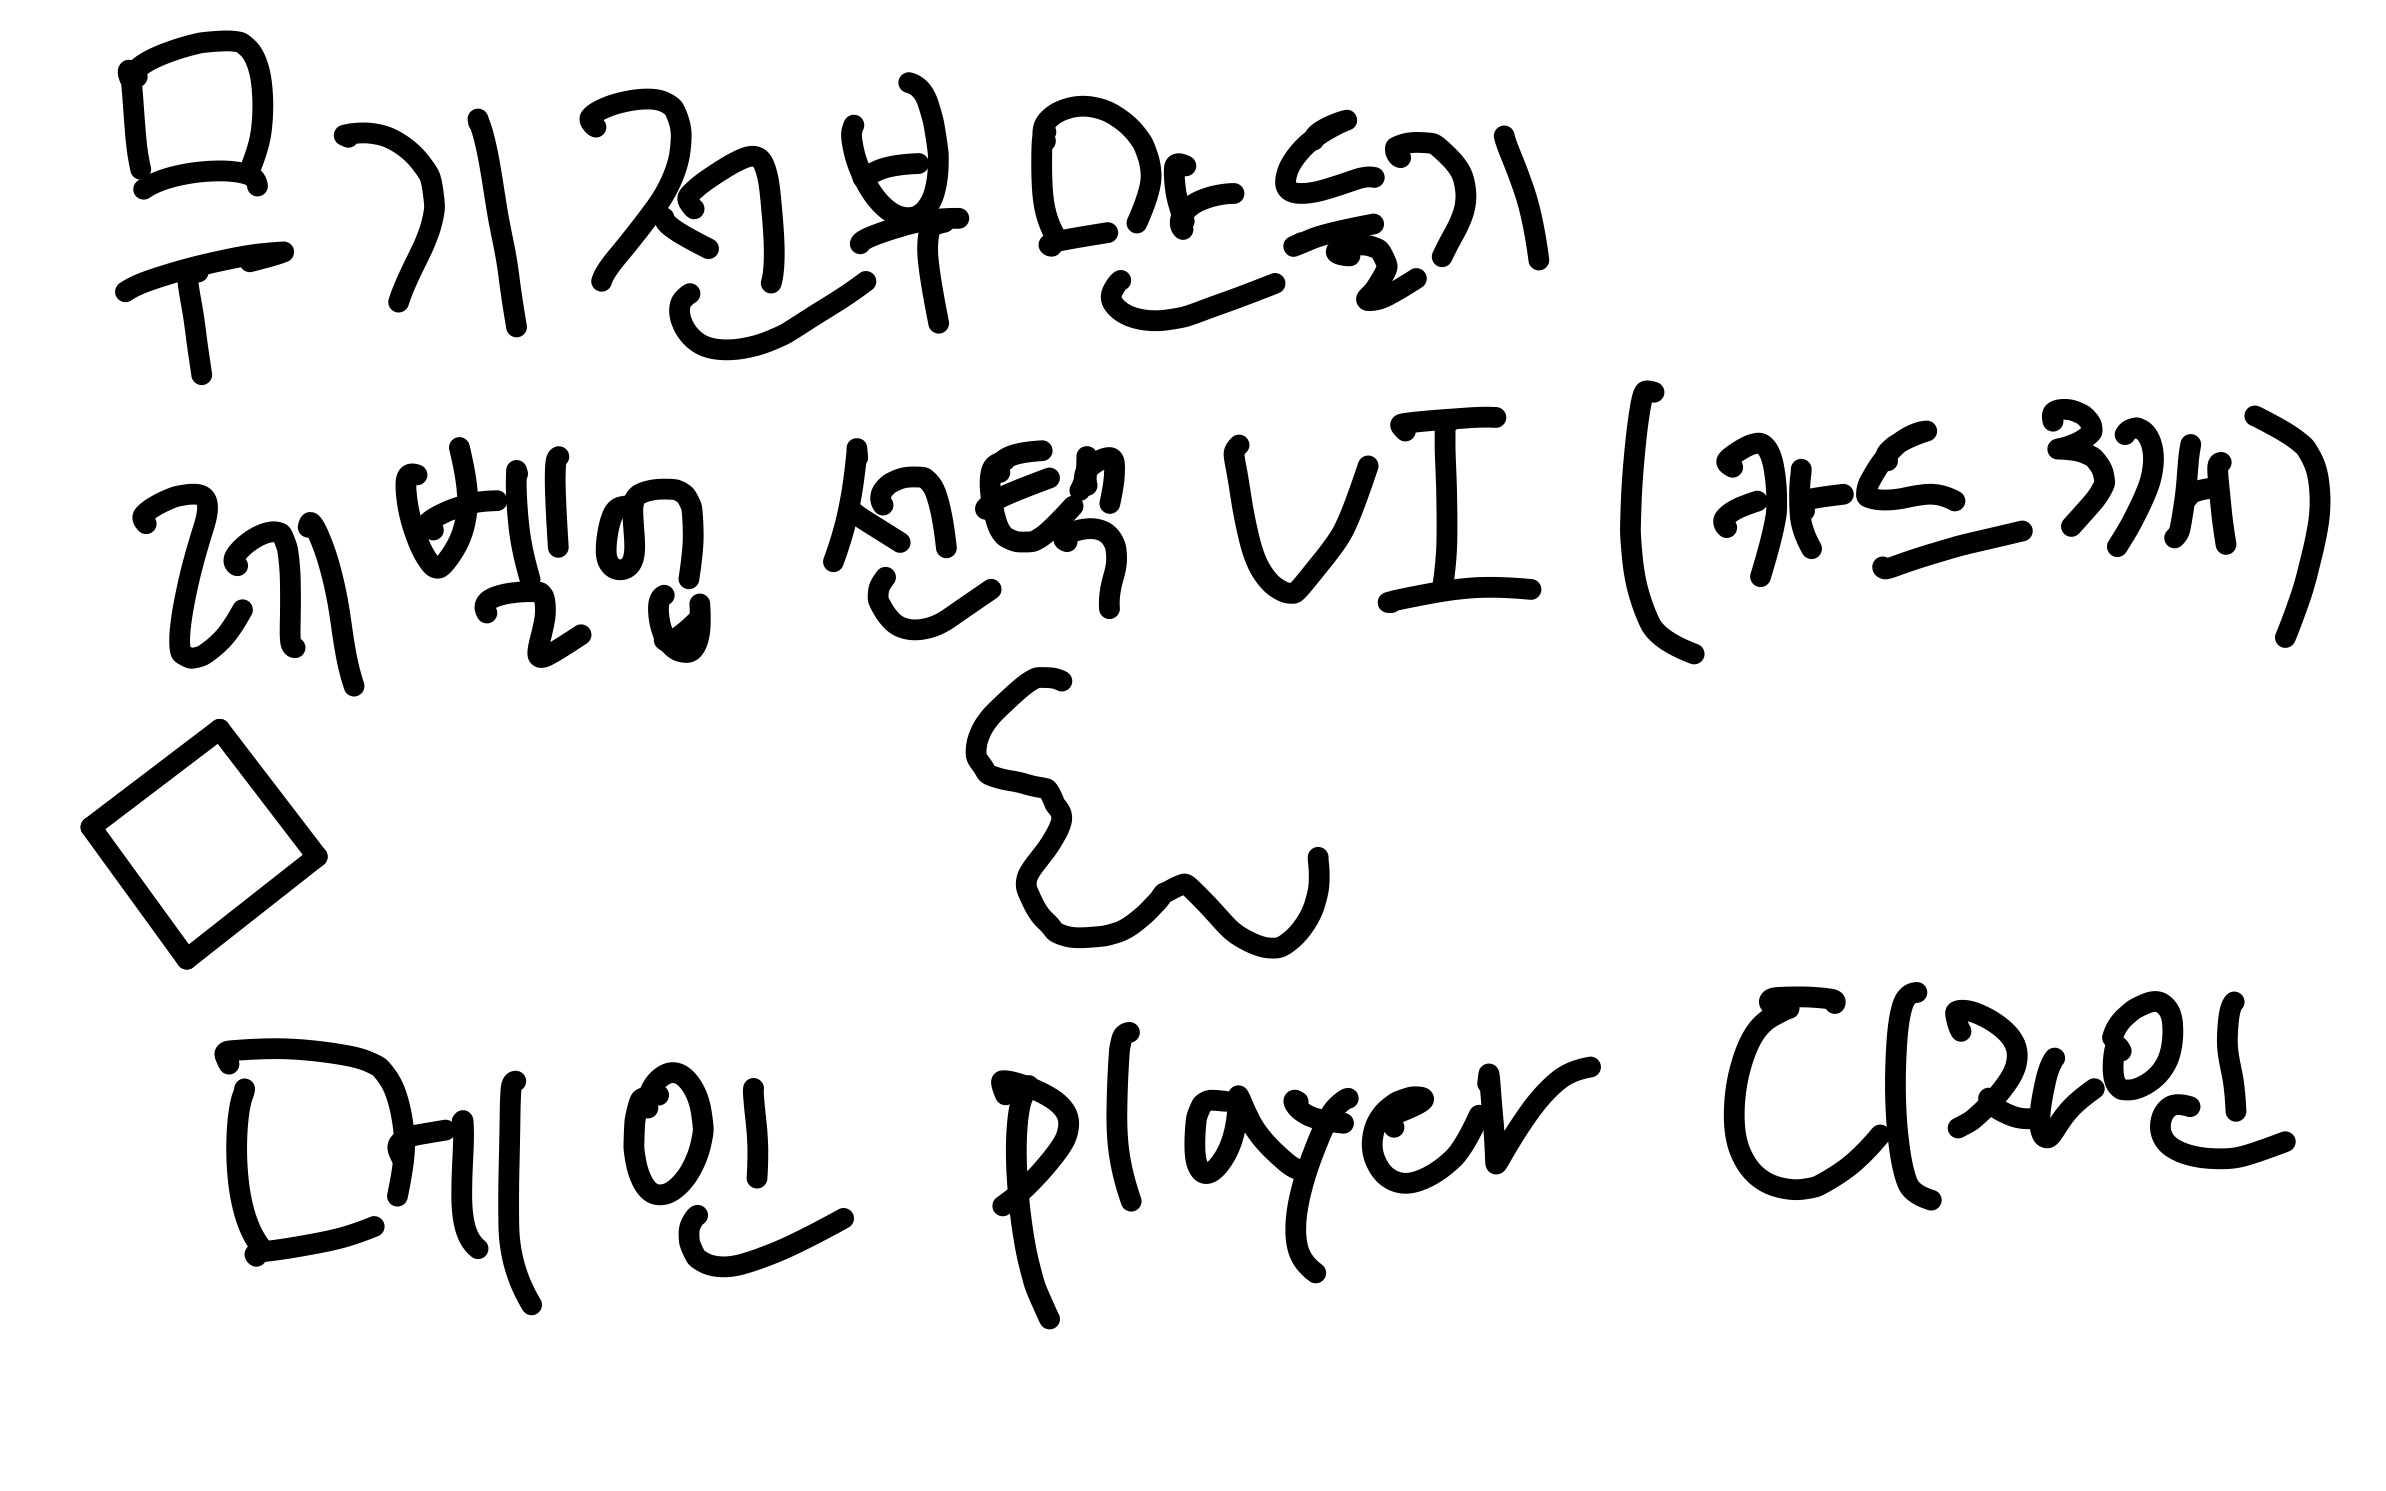 무기 전부 만들기
레벨업 선택 UI (카드3개)
메인 player 디자인